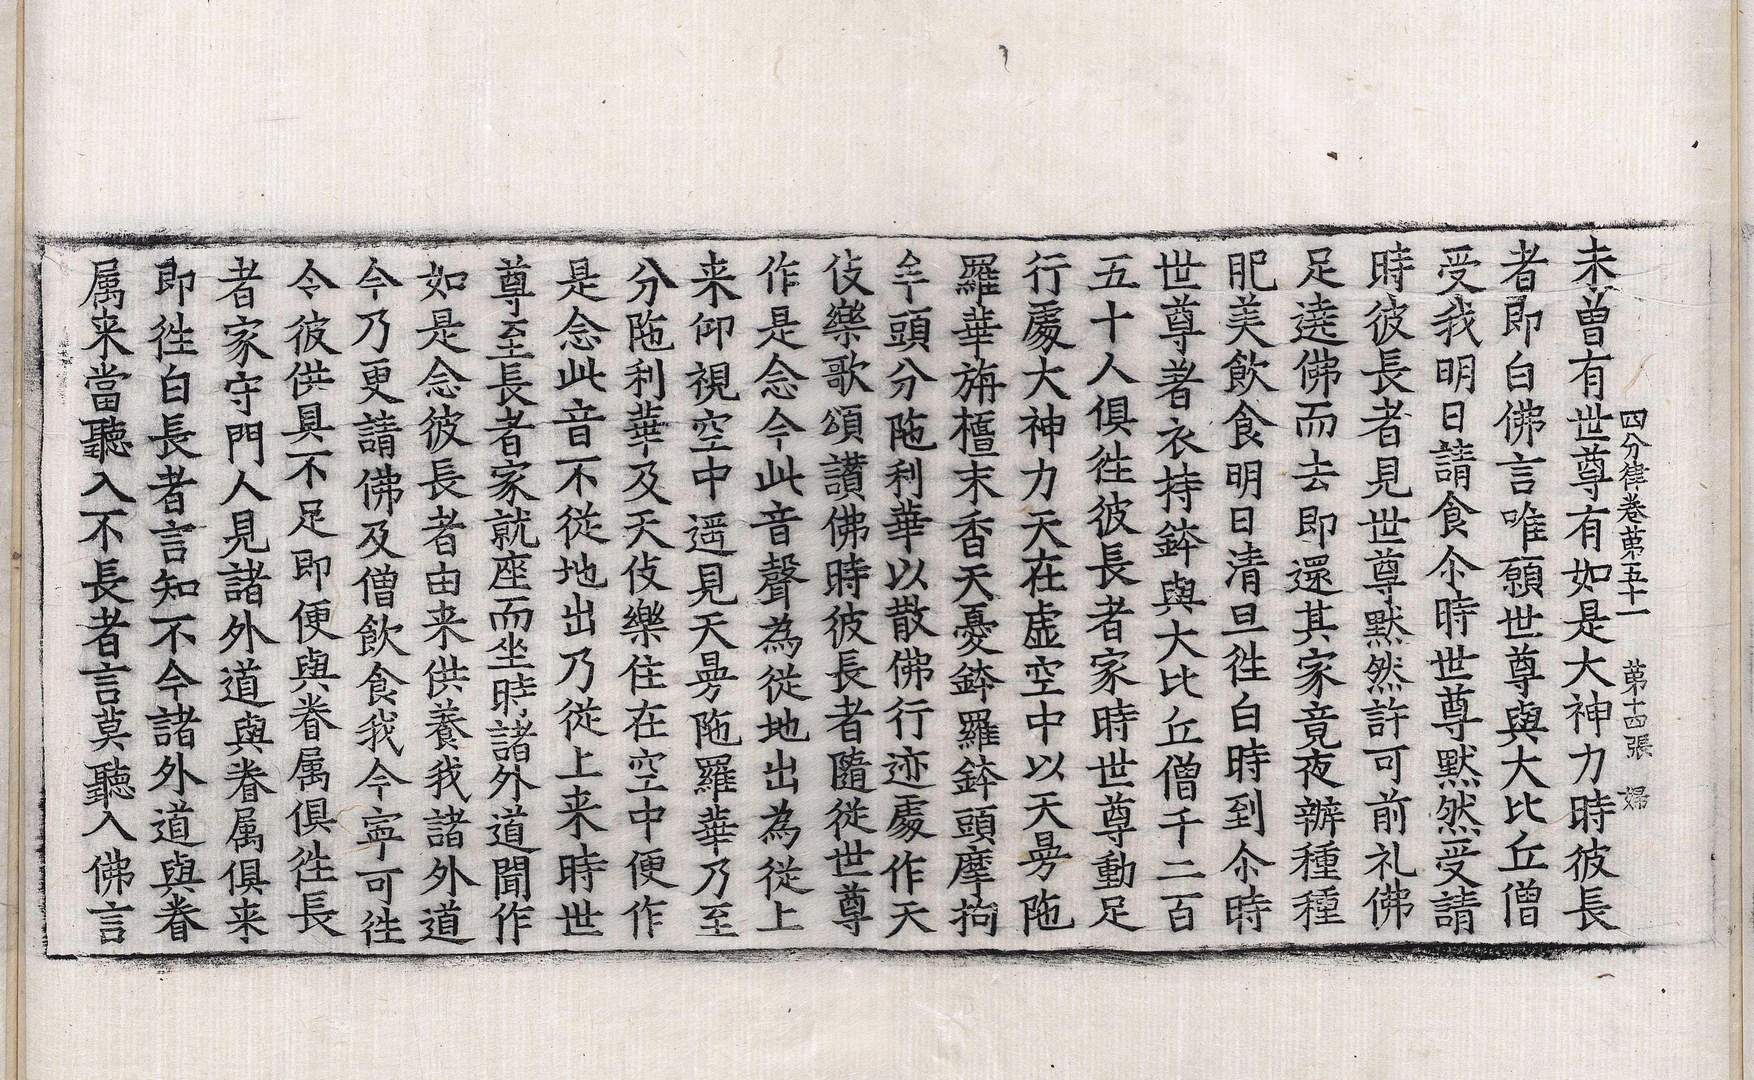 四分律卷第五十一　第十四張　婦
未曾有世尊有如是大神力時彼長
者即白佛言唯願世尊與大比丘僧
受我明日請食尒時世尊默然受請
時彼長者見世尊默然許可前礼佛
足遶佛而去即還其家竟夜辦種種
肥美飲食明日清旦徃白時到尒時
世尊著衣持鉢與大比丘僧千二百
五十人俱徃彼長者家時世尊動足
行處大神力天在虛空中以天曼陁
羅華旃檀末香天憂鉢羅鉢頭摩拘
牟頭分陁利華以散佛行迹處作天
伎樂歌頌讃佛時彼長者隨從世尊
作是念今此音聲為從地出為從上
来仰視空中遥見天曼陁羅華乃至
分陁利華及天伎樂住在空中便作
是念此音不從地出乃從上来時世
尊至長者家就座而坐時諸外道聞作
如是念彼長者由来供養我諸外道
今乃更請佛及僧飲食我今寧可徃
令彼供具不足即便與眷属俱徃長
者家守門人見諸外道與眷属俱来
即徃白長者言知不今諸外道與眷
属来當聽入不長者言莫聽入佛言